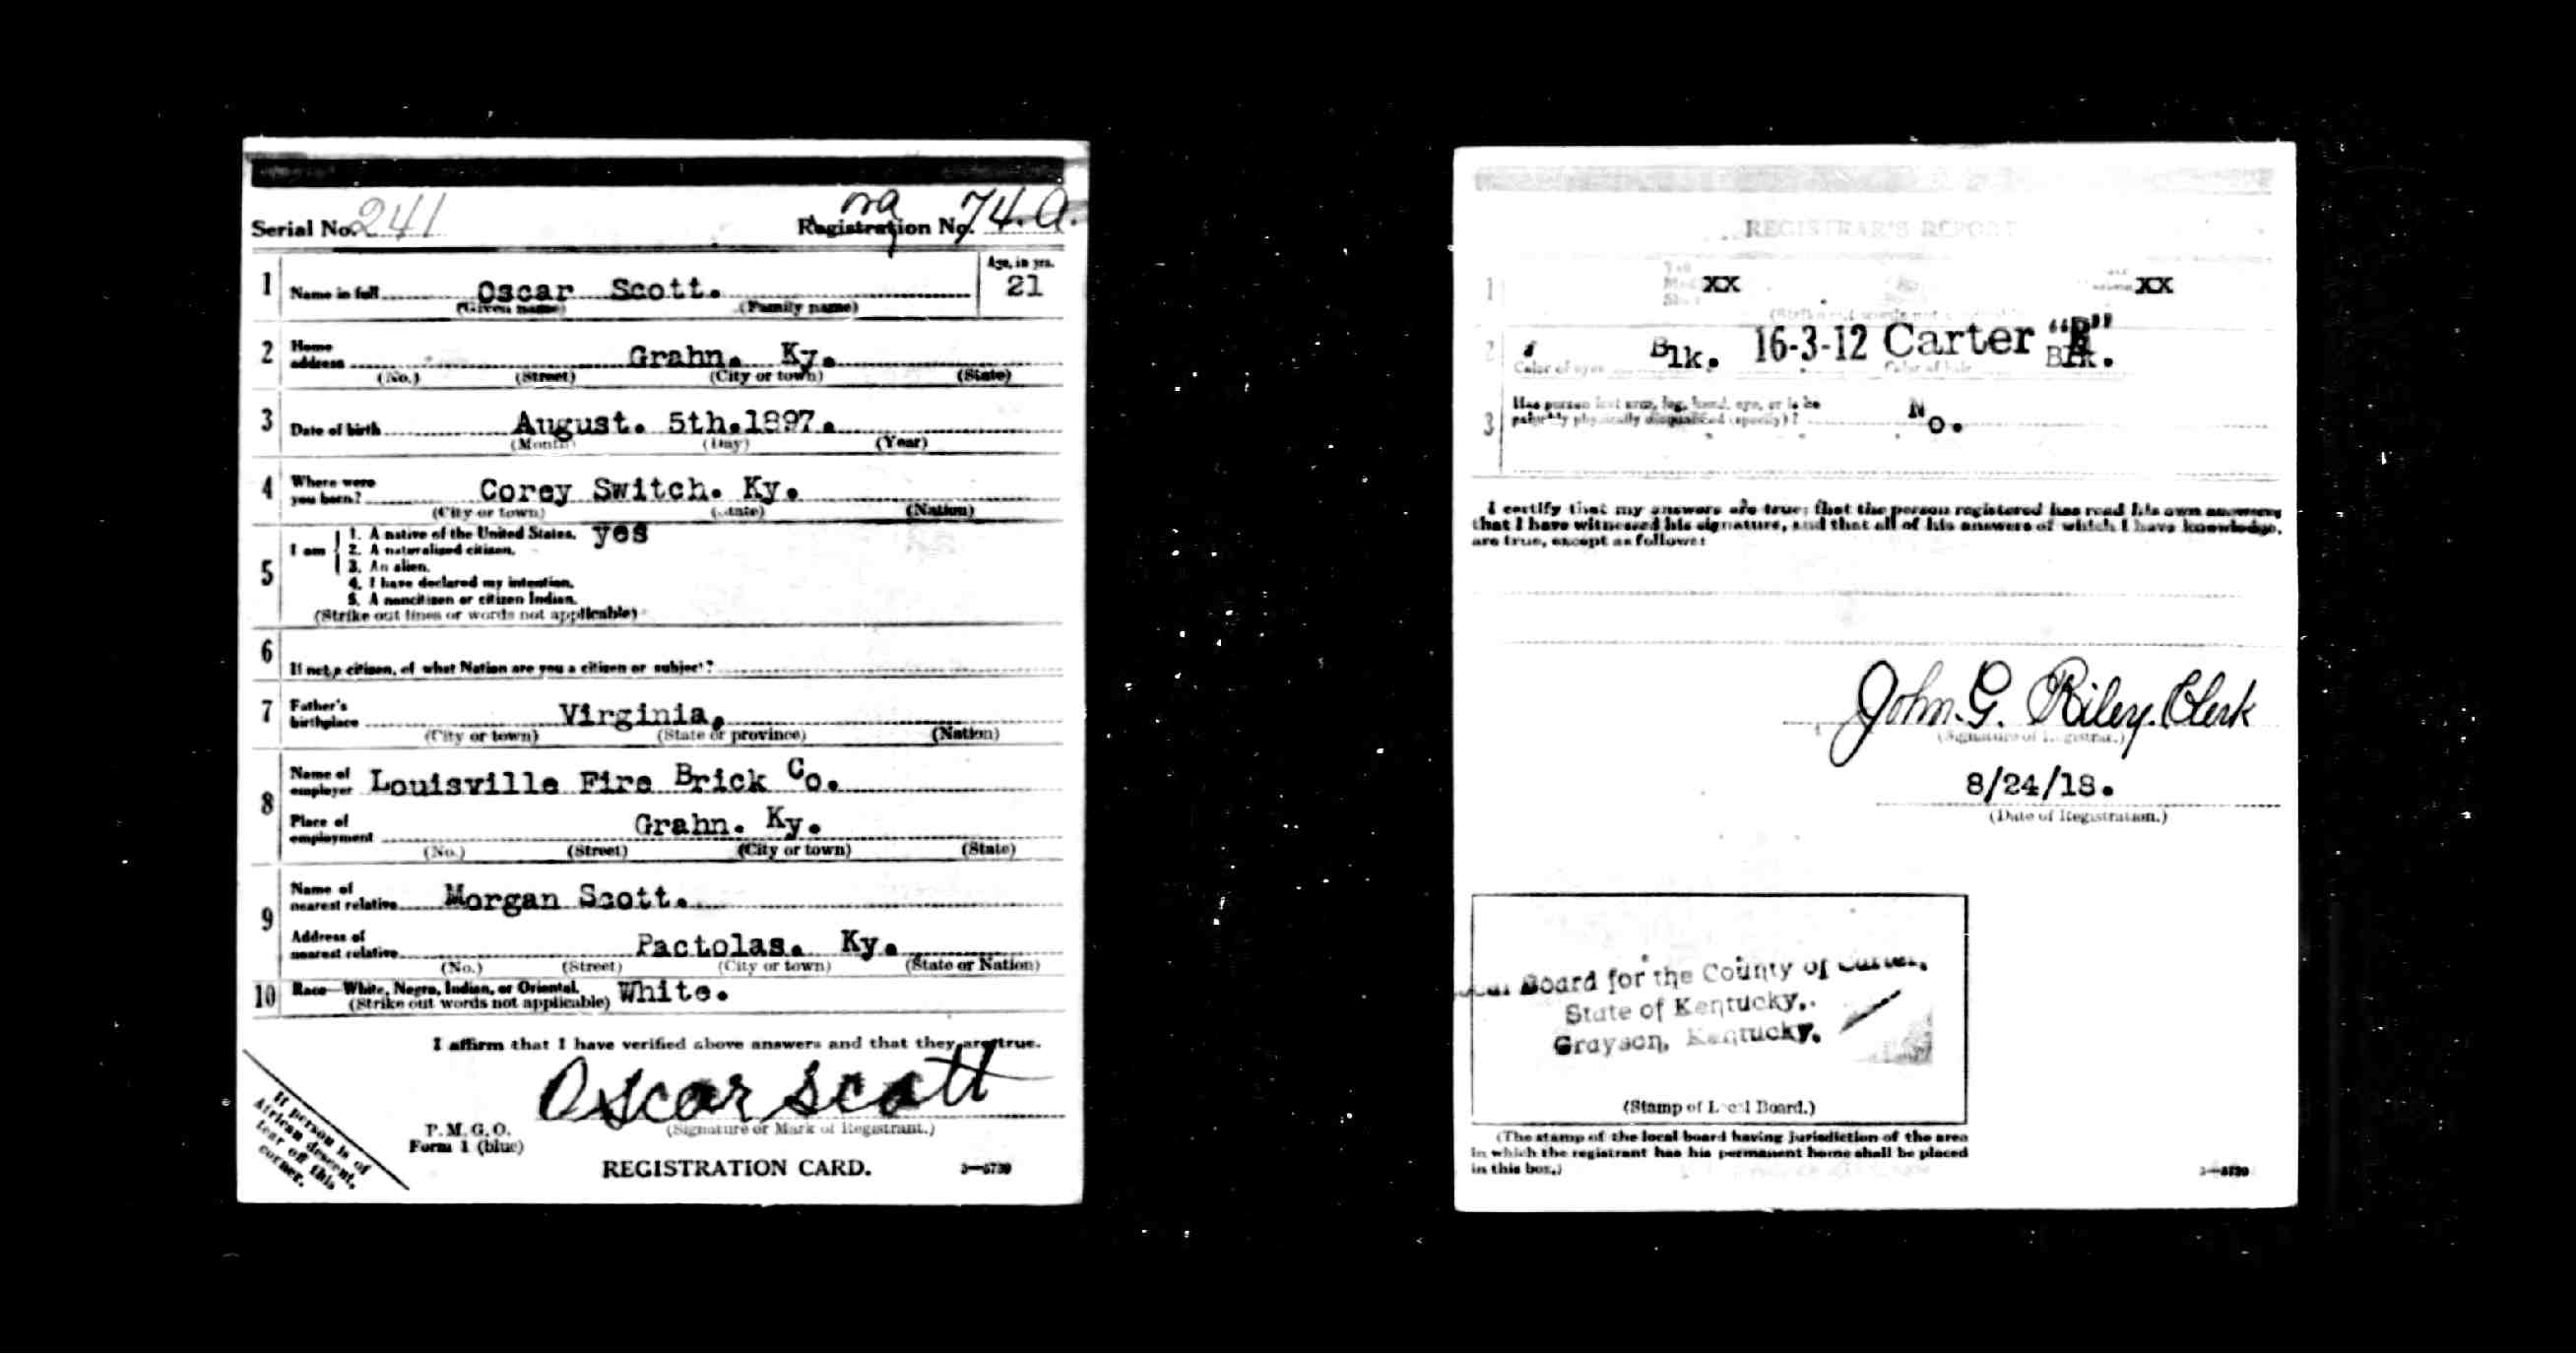 Serial No. 241 Registration No. 74. A.
1 Name in full Oscar Scott. Age, in yrs. 21
(Given name) (Family name)
2 Home address Grahn. Ky.
(No.) (Street) (City or town) (State)
3 Date of birth August. 5th.1897.
(Month) (Day) (Year)
4 Where were you born? Corey Switch. Ky.
(City or town) (State) (Nation)
5 I am
1. A native of the United States. yes
2. A naturalized citizen.
3. An alien.
4. I have declared my intention.
5. A noncitizen or citizen Indian.
(Strike out lines or words not applicable)
6 If not a citizen, of what Nation are you a citizen or subject?
7 Father's birthplace Virginia.
(City or town) (State or province) (Nation)
8 Name of employer Louisville Fire Brick Co.
Place of employment Grahn. Ky.
(No.) (Street) (City or town) (State)
9 Name of nearest relative Morgan Scott.
Address of nearest relative Pactolas. Ky.
(No.) (Street) (City or town) (State or Nation)
10 Race—White, Negro, Indian, or Oriental. White.
(Strike out words not applicable)
I affirm that I have verified above answers and that they are true.
Oscar Scott
(Signature or Mark of Registrant.)
P. M. G. O.
Form 1 (blue)
REGISTRATION CARD. 3—5739
If person is of
African descent,
tear off this
corner.
REGISTRAR'S REPORT
1 xx xx
2 Color of eyes Blk. 16-3-12 Carter Color of hair Blk.
3 Has person lost arm, leg, hand, eye, or is he
palpably physically disqualified (specify)? No.
I certify that my answers are true; that the person registered has read his own answers,
that I have witnessed his signature, and that all of his answers of which I have knowledge,
are true, except as follows:
John G. Riley. Clerk
(Signature of Registrar.)
8/24/18.
(Date of Registration.)
Local Board for the County of Carter,
State of Kentucky,
Grayson, Kentucky.
(Stamp of Local Board.)
(The stamp of the local board having jurisdiction of the area
in which the registrant has his permanent home shall be placed
in this box.)
3—5739